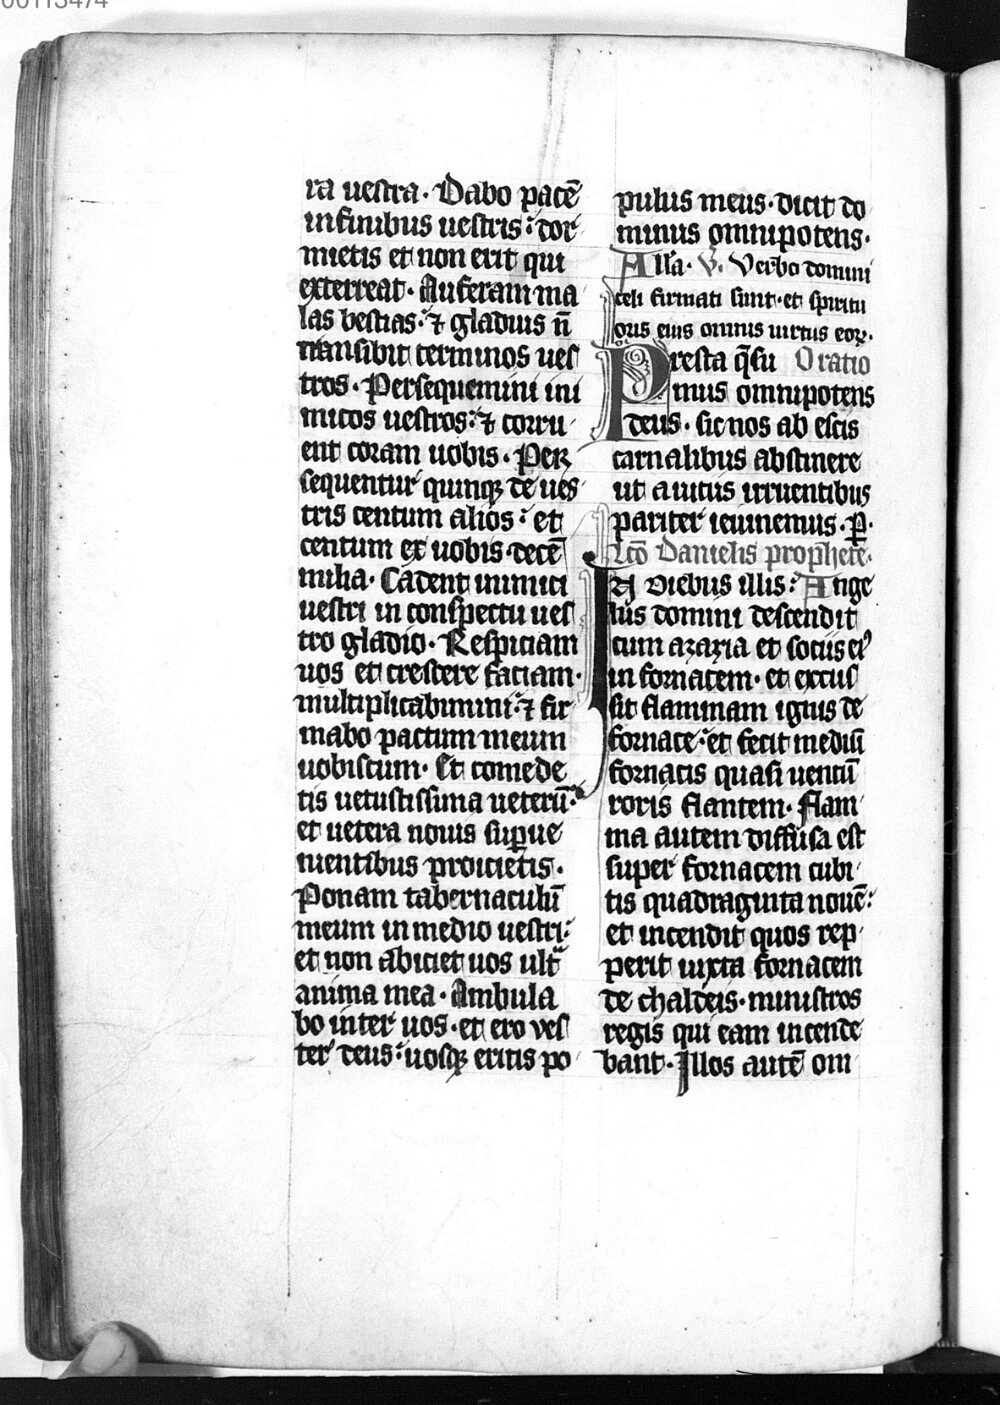 00113474
ra uestra. Dabo pacē
in finibus uestris: dor
mietis et non erit qui
exterreat. Auferam ma
las bestias: ⁊ gladius ñ
transibit terminos ues
tros. Persequemini ini
micos uestros: ⁊ corru
ent coram uobis. Per
sequentur quinqꝫ de ues
tris centum alios: et
centum ex uobis decē
milia. Cadent inimici
uestri in conspectu ues
tro gladio. Respiciam
uos et crescere faciam.
multiplicabimini: ⁊ fir
mabo pactum meum
uobiscum. Et comede
tis uetustissima ueterū.
et uetera nouis suꝑue
nientibus proicietis.
Ponam tabernaculū
meum in medio uestri:
et non abiciet uos ult̄
anima mea. Ambula
bo inter uos. et ero ves
ter deus: uosqꝫ eritis po
pulus meus. dicit do
minus omnipotens.
Alla. V. Verbo domini
celi firmati sunt. et spiritu
oris eius omnis uirtus eoꝝ.
Presta q̄su Oratio
mus omnipotens
deus. sic nos ab escis
carnalibus abstinere
ut a uitiis irruentibus
pariter ieiunemus. P.
Lc̄o Danielis prophete.
In diebus illis: Ange
lus domini descendit
cum azaria et sociis ei᷒
in fornacem. et excus
sit flammam ignis de
fornace: et fecit mediū
fornacis quasi uentū
roris flantem. Flam
ma autem diffusa est
super fornacem cubi
tis quadraginta nouē:
et incendit quos rep
perit iuxta fornacem
de chaldeis. ministros
regis qui eam incende
bant. Illos autē om